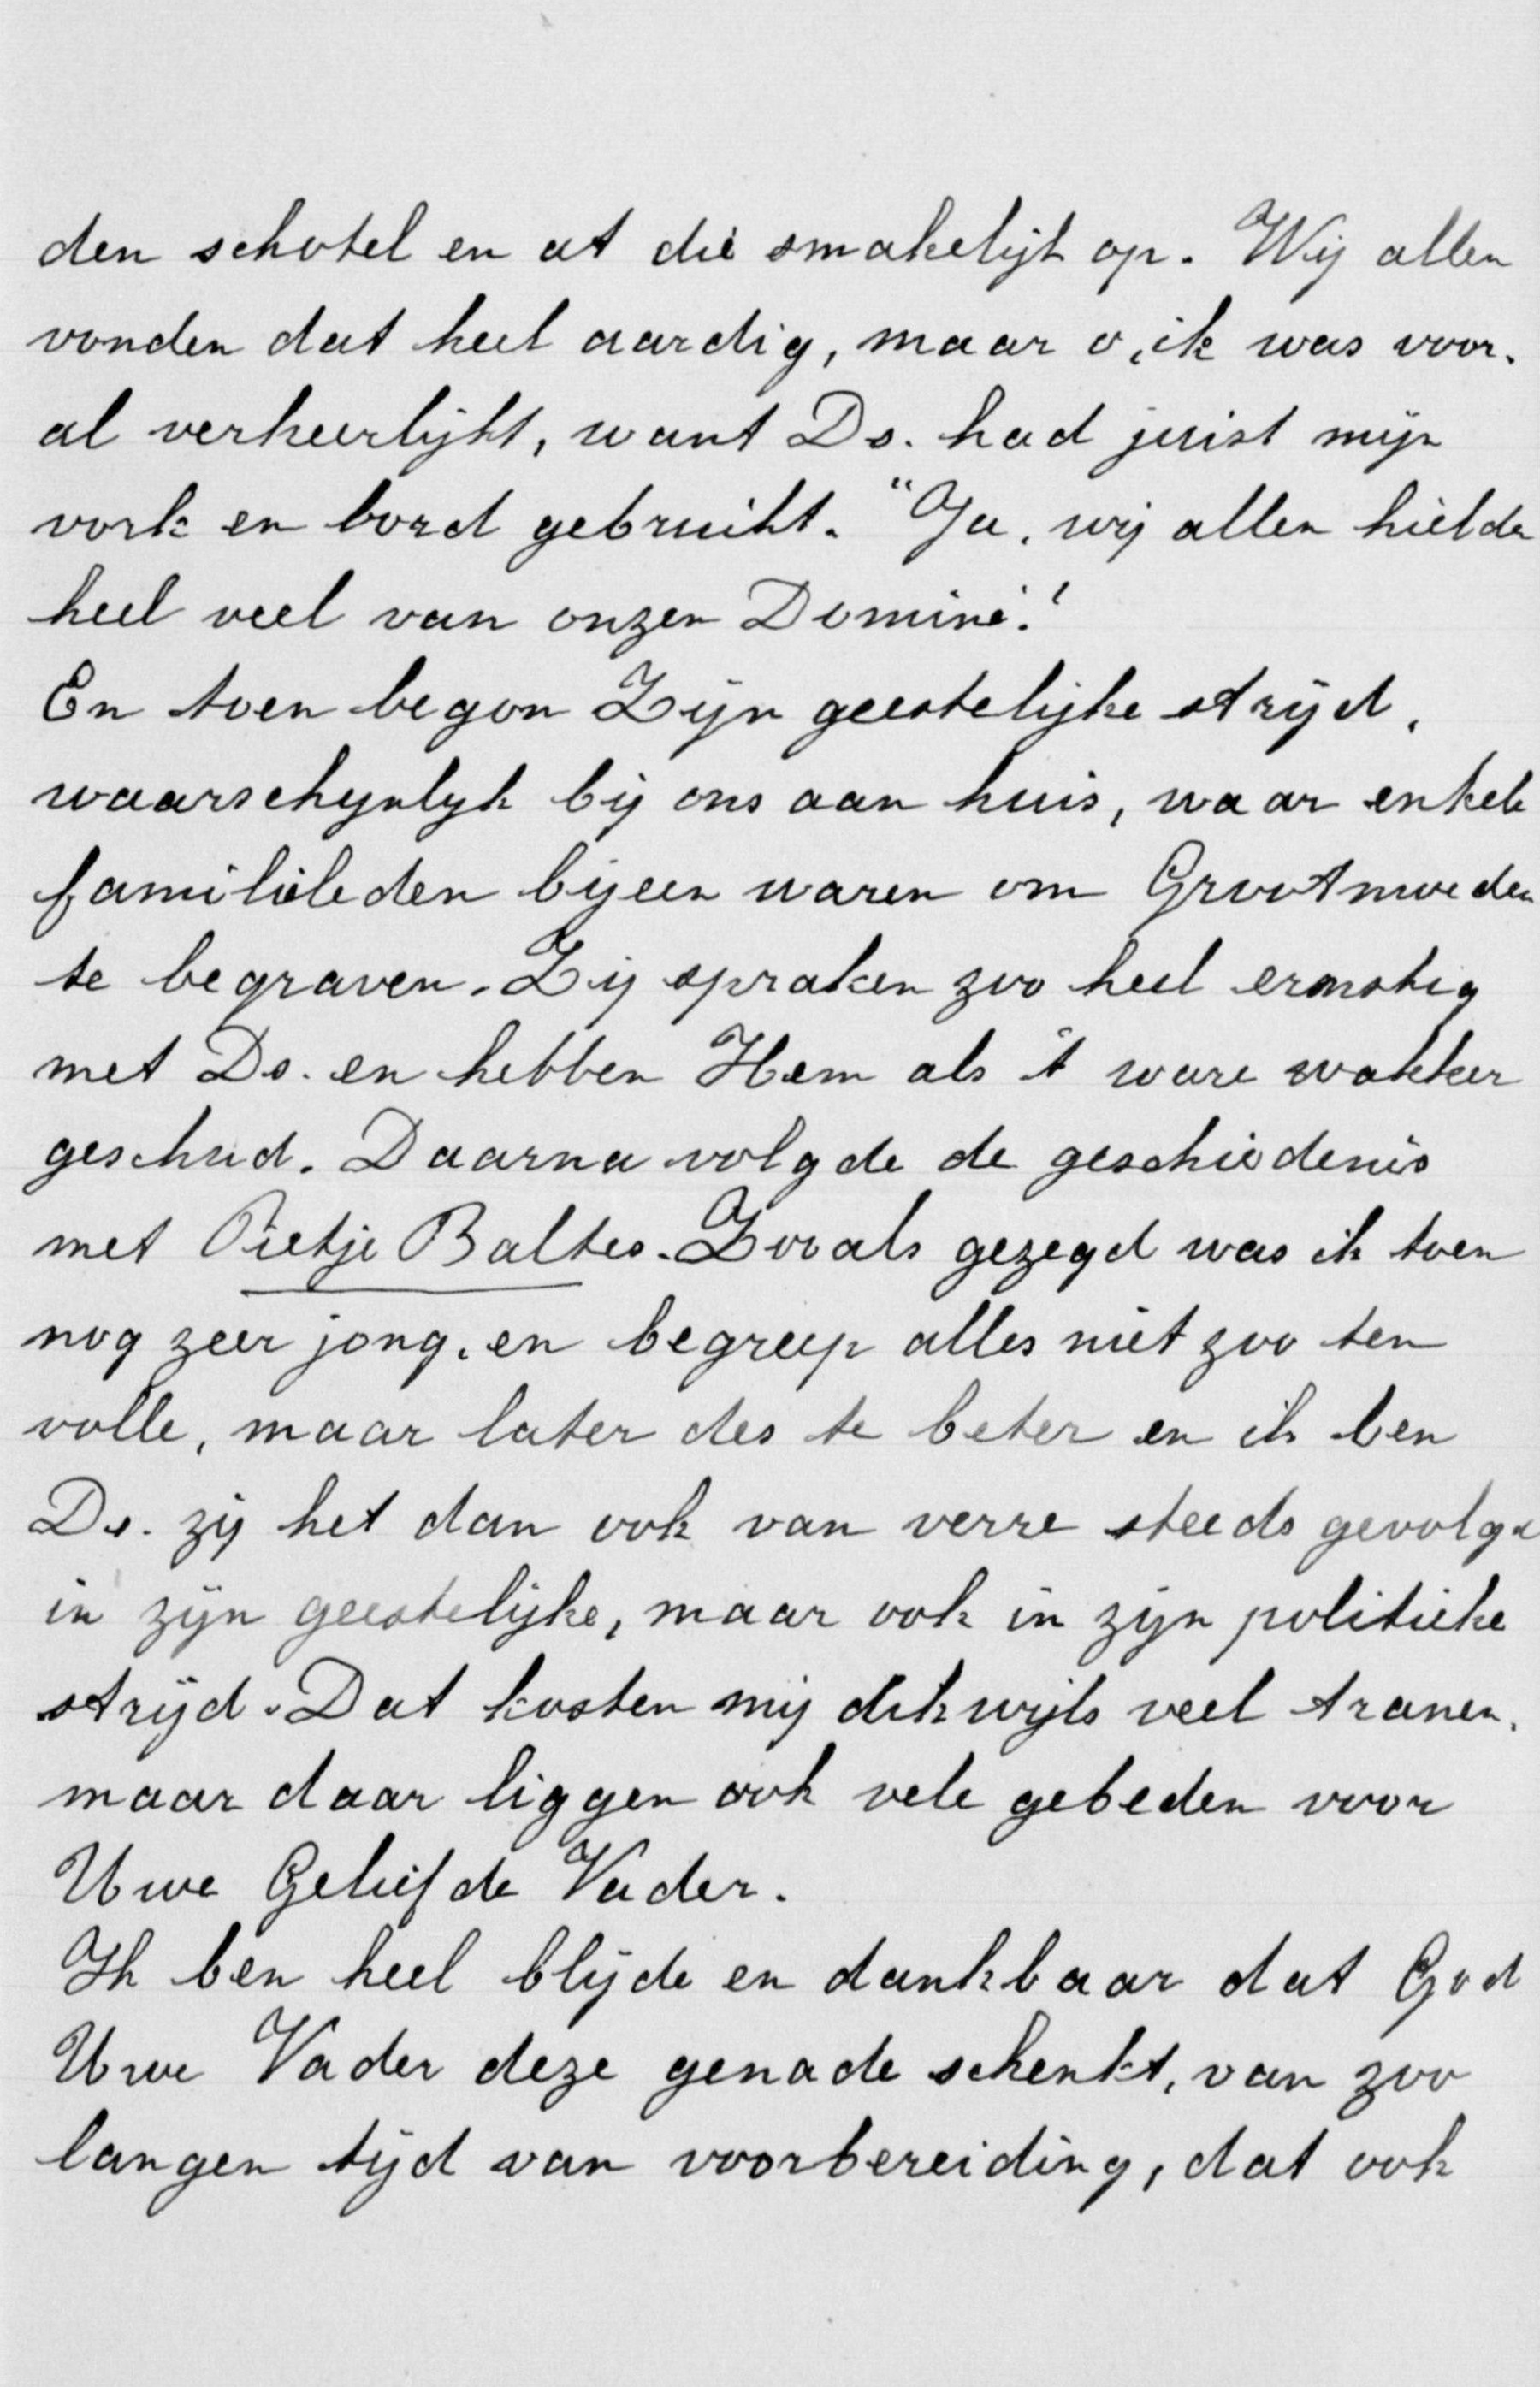 den schotel en at die smakelijk op. Wij allen
vonden dat heel aardig, maar o, ik was voor-
al verheerlijkt, want Ds. had juist mijn
vork en bord gebruikt. "Ja, wij allen hielden
heel veel van onzen Dominé!
En toen begon Zijn geestelijke strijd,
waarschynlyk bij ons aan huis, waar enkele
familieleden bijeen waren om Grootmoeder
te begraven. Zij spraken zoo heel ernstig
met Ds. en hebben Hem als 't ware wakker
geschud. Daarna volgde de geschiedenis
met Pietje Baltes. Zooals gezegd was ik toen
nog zeer jong, en begreep alles niet zoo ten
volle, maar later des te beter en ik ben
Ds. zij het dan ook van verre steeds gevolgd
in zijn geestelijke, maar ook in zijn politieke
strijd. Dat kosten mij dikwijls veel tranen,
maar daar liggen ook vele gebeden voor
Uwe Geliefde Vader.
Ik ben heel blijde en dankbaar dat God
Uwe Vader deze genade schenkt, van zoo
langen tijd van voorbereiding, dat ook